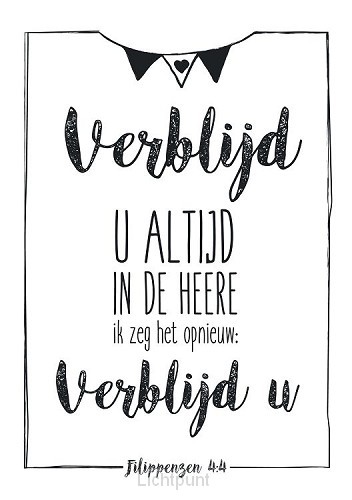 Verblijd
U ALTIJD
IN DE HEERE
ik zeg het opnieuw:
Verblijd u
Filippenzen 4:4
Lichtpunt